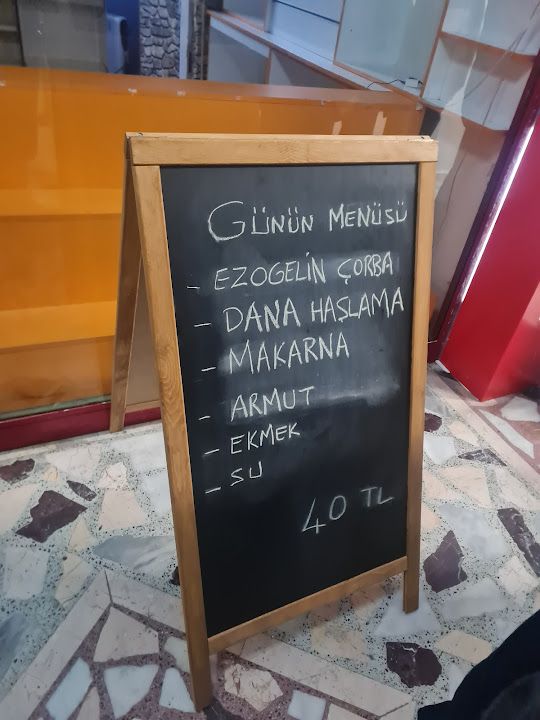 GÜNÜN MENÜSÜ
- EZOGELİN ÇORBA
- DANA HAŞLAMA
- MAKARNA
- ARMUT
- EKMEK
- SU
40 TL